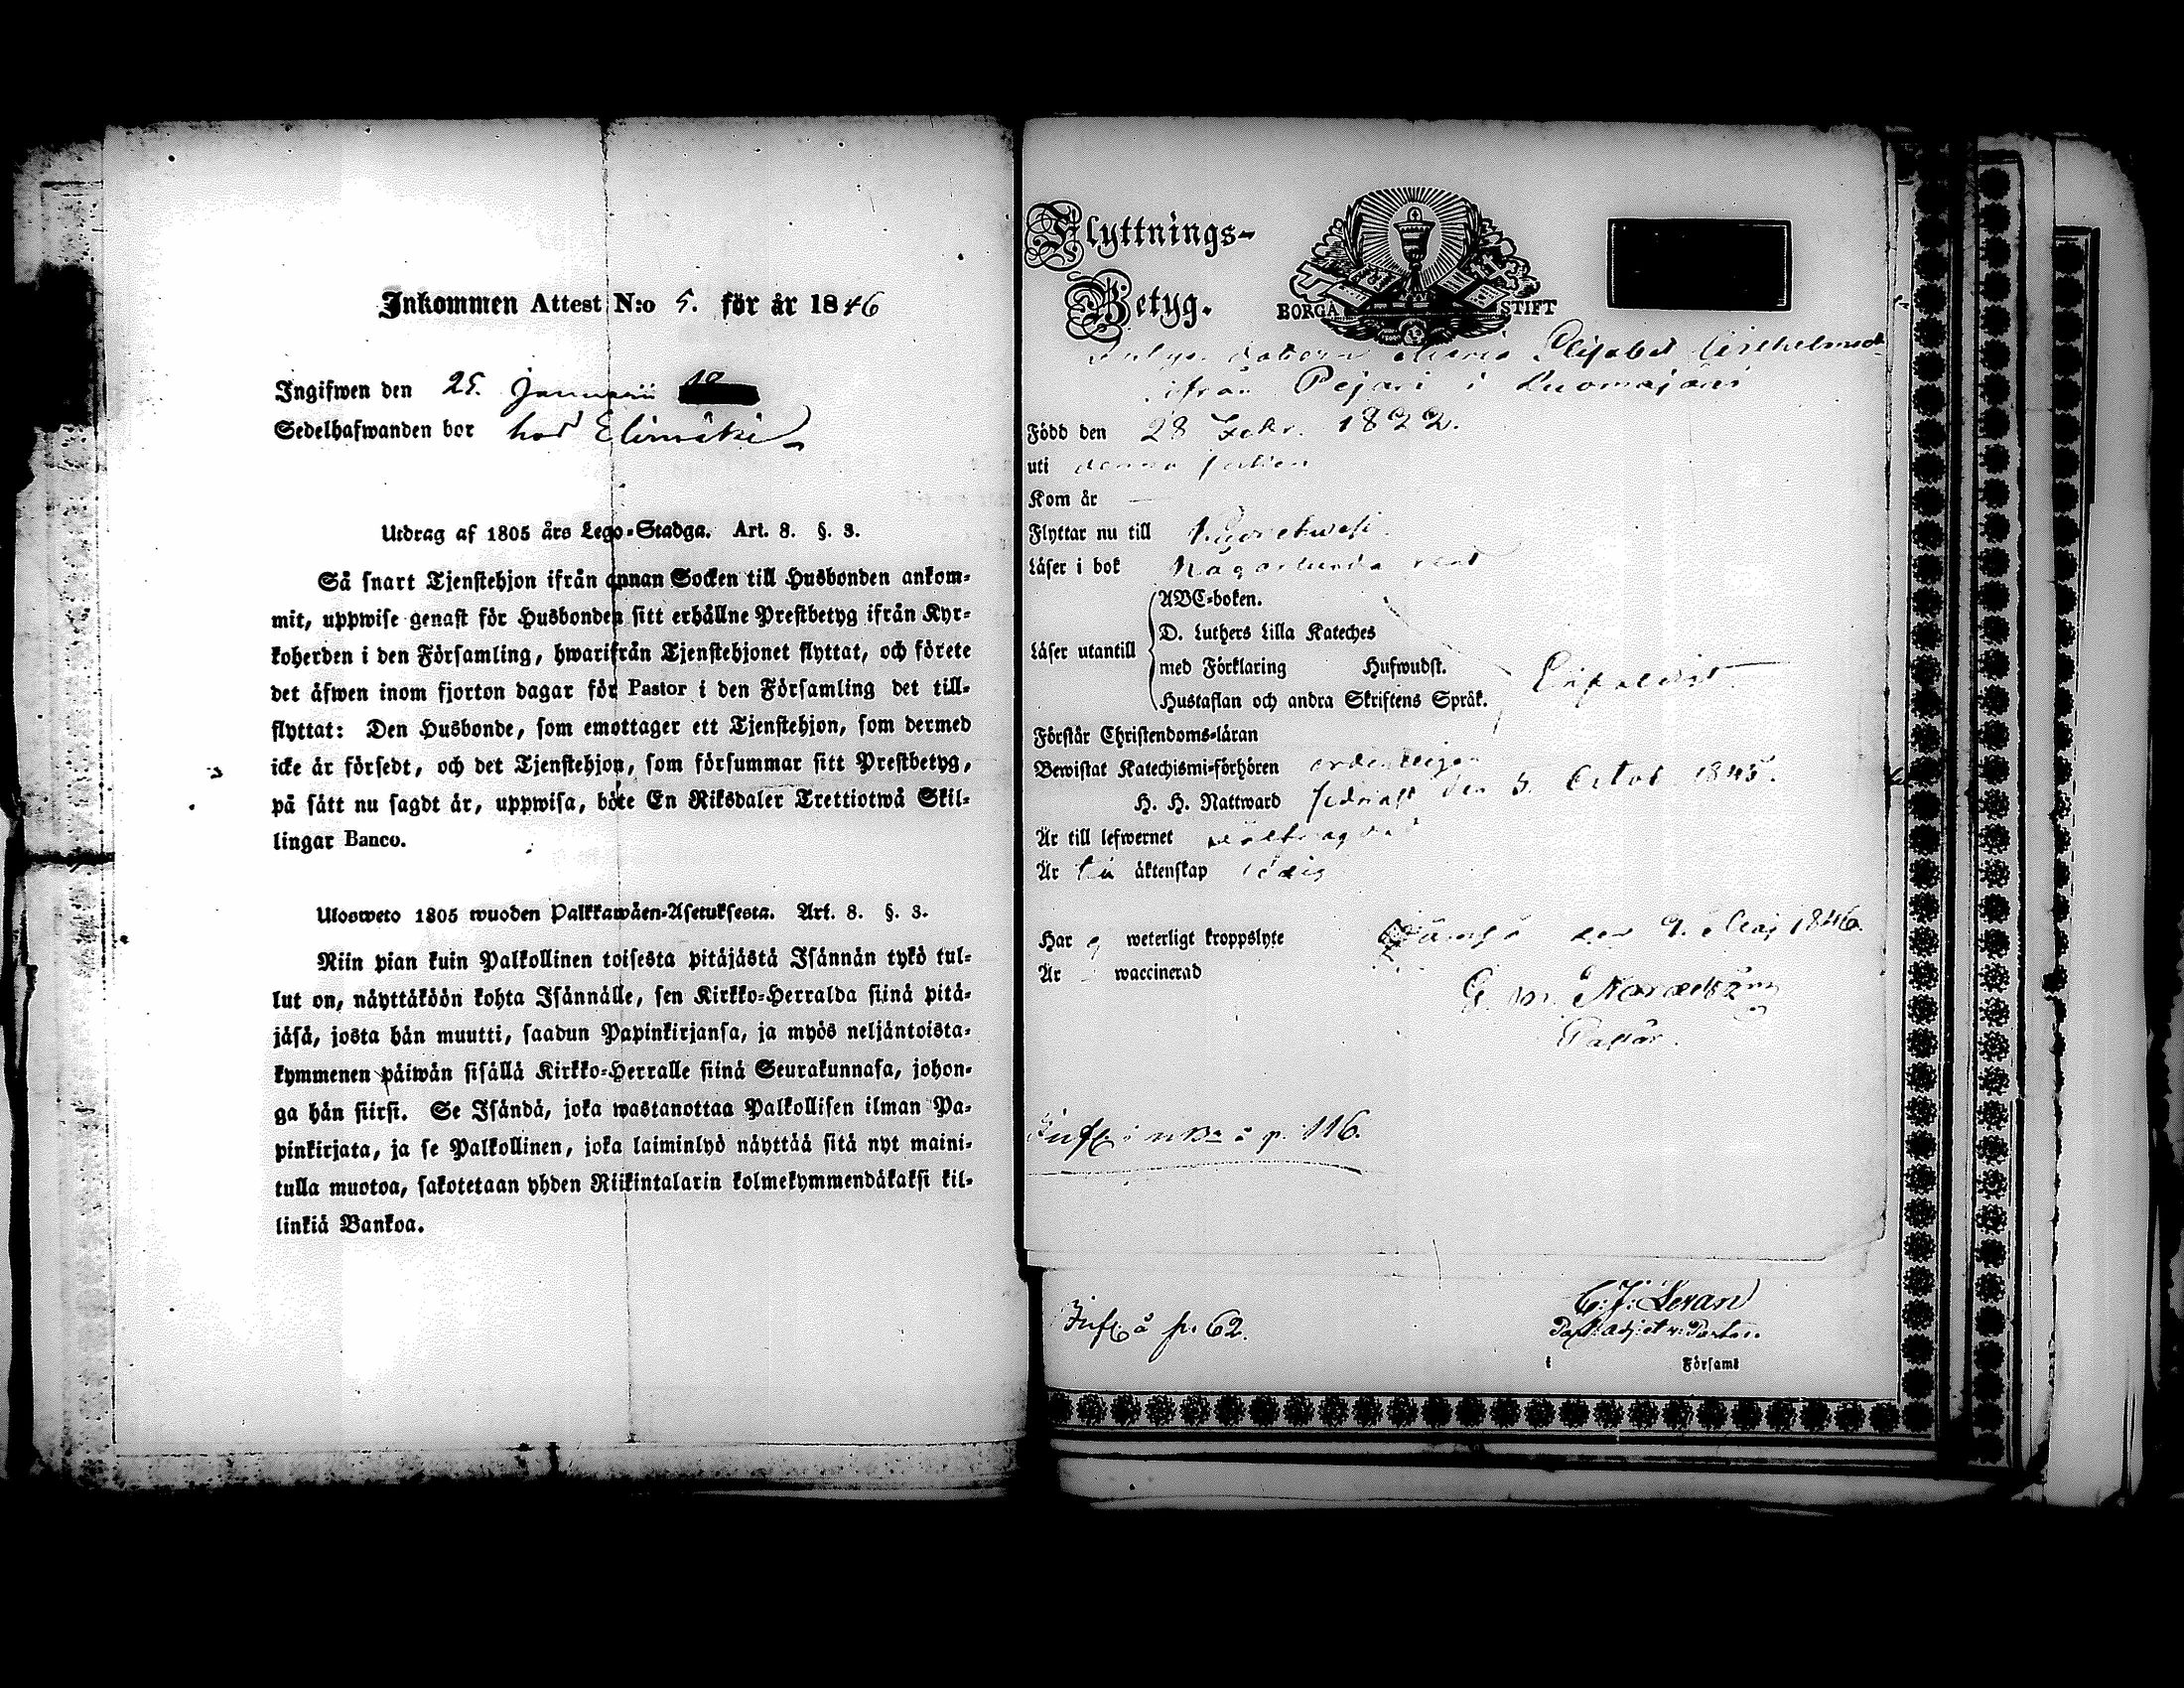 Inkommen Attest N:o 5. för år 1846
Ingifwen den 25. Januarii
Sedelhafwanden bor hos Elimäki
Utdrag af 1805 års Lego-Stadga. Art. 8. §. 3.
Så snart Tjenstehjon ifrån annan Socken till Husbonden ankom-
mit, uppwise genast för Husbonden sitt erhållne Prestbetyg ifrån Kyr-
koherden i den Församling, hwarifrån Tjenstehjonet flyttat, och förete
det äfwen inom fjorton dagar för Pastor i den Församling det till-
flyttat: Den Husbonde, som emottager ett Tjenstehjon, som dermed
icke är försedt, och det Tjenstehjon, som försummar sitt Prestbetyg,
på sätt nu sagdt är, uppwisa, böte En Riksdaler Trettiotwå Skil-
lingar Banco.
Ulosweto 1805 wuoden Palkkawäen-Asetuksesta. Art. 8. §. 3.
Niin pian kuin Palkollinen toisesta pitäjästä Isännän tykö tul-
lut on, näyttäköön kohta Isännälle, sen Kirkko-Herralda siinä pitä-
jäsä, josta hän muutti, saadun Papinkirjansa, ja myös neljäntoista-
kymmenen päiwän sisällä Kirkko-Herralle siinä Seurakunnasa, johon-
ga hän siirsi. Se Isändä, joka wastanottaa Palkollisen ilman Pa-
pinkirjata, ja se Palkollinen, joka laiminlyö näyttää sitä nyt maini-
tulla muotoa, sakotetaan yhden Riikintalarin kolmekymmendäkaksi kil-
linkiä Bankoa.
Flyttnings-
Betyg.
BORGÅ STIFT
Maria Elisabet
ifrån Pejari i Luomajärvi
Född den 28 Febr. 1822.
uti denna
Kom år
Flyttar nu till
Läser i bok Någorlunda rent
Läser utantill
ABC-boken.
D. Luthers Lilla Kateches
med Förklaring Hufwudst.
Hustaflan och andra Skriftens Språk.
Förstår Christendoms-läran
Bewistat Katechismi-förhören ordentligen
H. H. Nattward sednast den 5. Octob. 1845.
Är till lefwernet
Är till äktenskap ledig
Har ej weterligt kroppslyte
Är waccinerad
Jämsä den 9. Maj 1846.
Pastor.
p. 116.
å p. 62.
C: J: Levan
i Församl